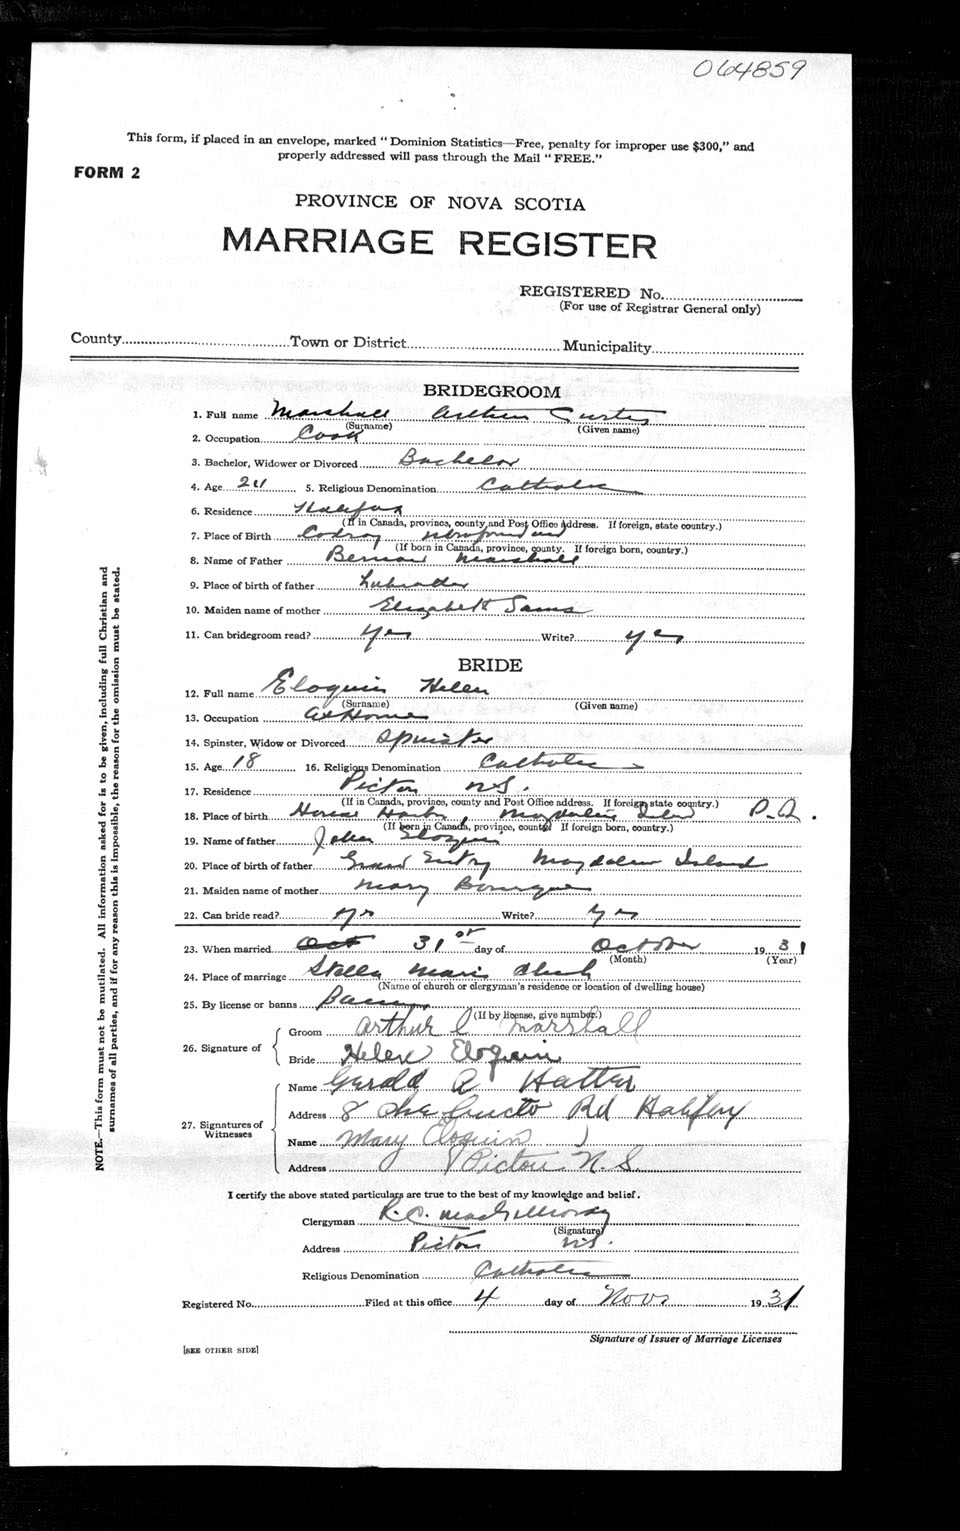 064859
This form, if placed in an envelope, marked "Dominion Statistics—Free, penalty for improper use $300," and
properly addressed will pass through the Mail "FREE."
FORM 2
PROVINCE OF NOVA SCOTIA
MARRIAGE REGISTER
REGISTERED No.
(For use of Registrar General only)
County Town or District Municipality
BRIDEGROOM
1. Full name Marshall Arthur Curtis
(Surname) (Given name)
2. Occupation Cook
3. Bachelor, Widower or Divorced Bachelor
4. Age 5. Religious Denomination Catholic
6. Residence Halifax
(If in Canada, province, county and Post Office address. If foreign, state country.)
7. Place of Birth Codroy Newfoundland
(If born in Canada, province, county. If foreign born, country.)
8. Name of Father Bernard Marshall
9. Place of birth of father Labrador
10. Maiden name of mother Elizabeth Sams
11. Can bridegroom read? yes Write? yes
BRIDE
12. Full name Eloquin Helen
(Surname) (Given name)
13. Occupation At Home
14. Spinster, Widow or Divorced Spinster
15. Age 18 16. Religious Denomination Catholic
17. Residence Pictou N.S.
(If in Canada, province, county and Post Office address. If foreign state country.)
18. Place of birth House Harbor, Magdalen P.Q.
(If born in Canada, province, county If foreign born, country.)
19. Name of father John Eloquin
20. Place of birth of father Grand Entry Magdalen Island
21. Maiden name of mother Mary Bourque
22. Can bride read? yes Write? yes
23. When married Oct 31st day of October 1931
(Month) (Year)
24. Place of marriage Stella Maris Church
(Name of church or clergyman's residence or location of dwelling house)
25. By license or banns Banns
(If by license, give number.)
26. Signature of
Groom Arthur C Marshall
Bride Helen Eloquin
27. Signatures of Witnesses
Name Gerald A Hatter
Address 8 Rd Halifax
Name Mary Eloquin
Address Pictou N.S.
I certify the above stated particulars are true to the best of my knowledge and belief.
Clergyman R.C. MacGillivray
(Signature)
Address Pictou N.S.
Religious Denomination Catholic
Registered No. Filed at this office 4 day of Nov. 1931
Signature of Issuer of Marriage Licenses
[SEE OTHER SIDE]
NOTE.—This form must not be mutilated. All information asked for is to be given, including full Christian and
surnames of all parties, and if for any reason this is impossible, the reason for the omission must be stated.